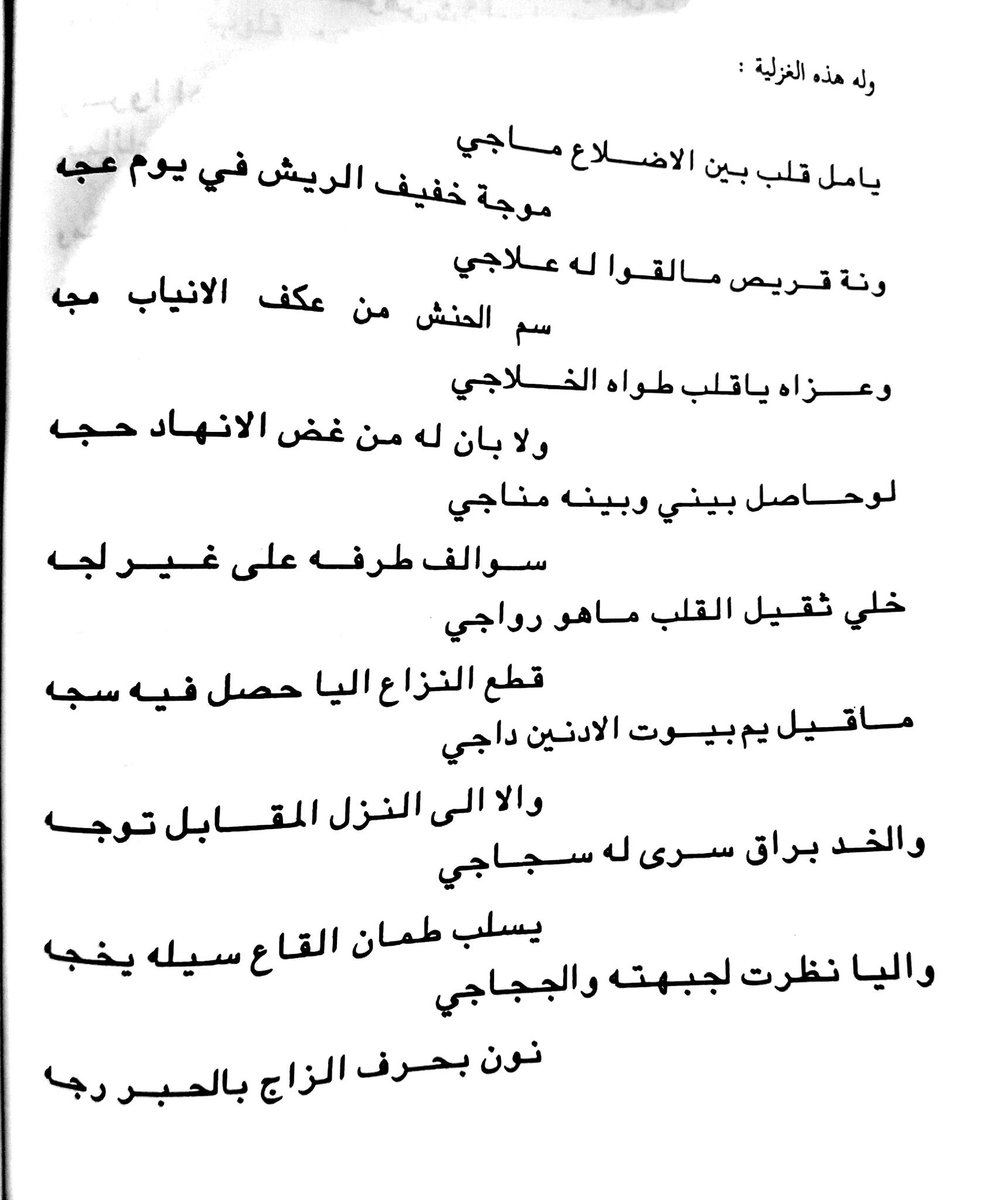 وله هذه الغزلية :
يامل قلب بين الاضلاع ماجي
موجة خفيف الريش في يوم عجه
ونة قريص مالقوا له علاجي
سم الحنش من عكف الانياب مجه
وعزاه ياقلب طواه الخلاجي
ولا بان له من غض الانهاد حجه
لوحاصل بيني وبينه مناجي
سوالف طرفه على غير لجه
خلي ثقيل القلب ماهو رواجي
قطع النزاع اليا حصل فيه سجه
ماقيل يم بيوت الادنين داجي
والا الى النزل المقابل توجه
والخد براق سرى له سجاجي
يسلب طمان القاع سيله يخجه
واليا نظرت لجبهته والججاجي
نون بحرف الزاج بالحبر رجه